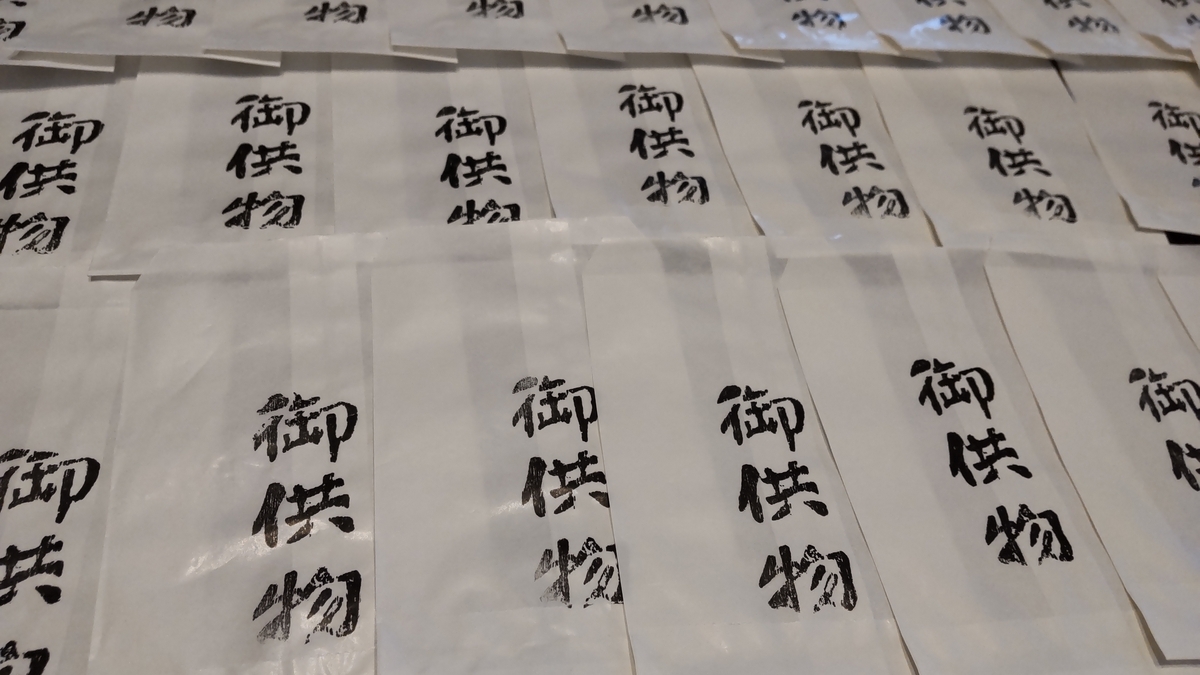 物
物
物
物
物
供物
供物
供物
御供物
御供物
御供物
御供物
御供物
御供物
御供
御供物
御供物
御供物
御供物
御供物
御供